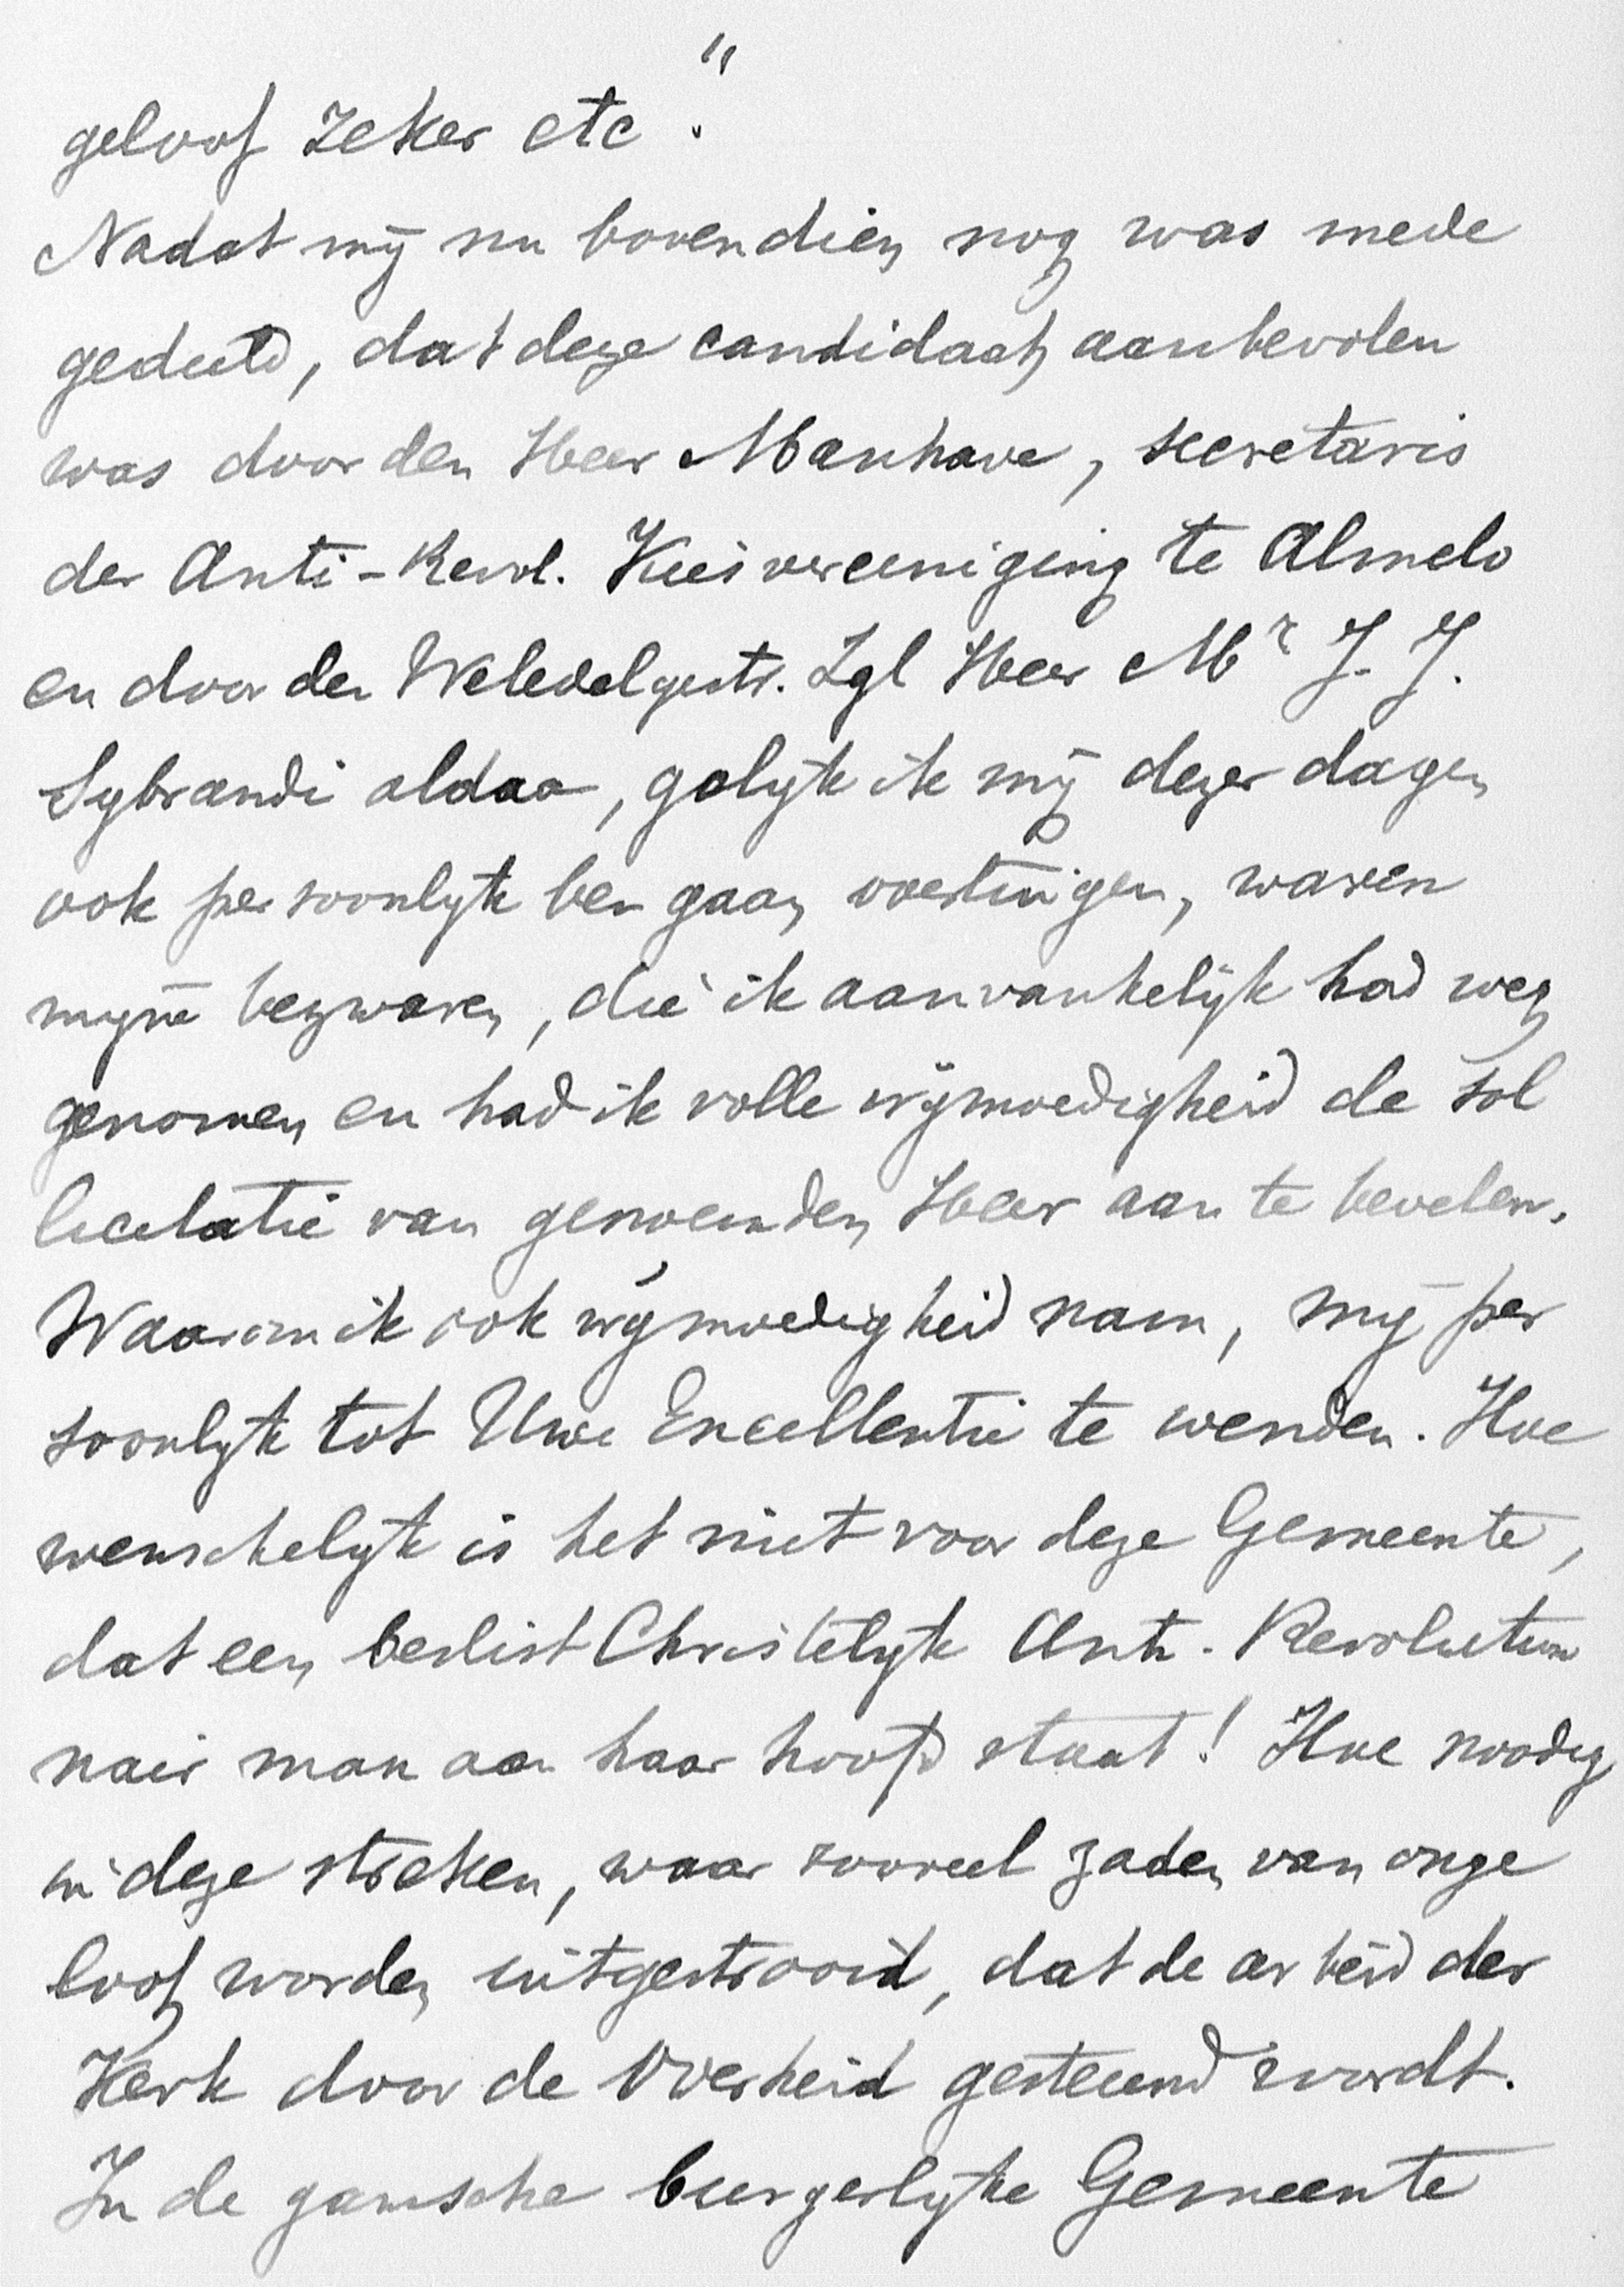 geloof zeker etc."
Nadat mij nu bovendien nog was mede
gedeeld, dat deze candidaat aanbevolen
was door den Heer Manhave, secretaris
der Anti-Revol. Kiesvereeniging te Almelo
en door den Weledelgestr. Zgl Heer Mr J. J.
Sybrandi aldaar, gelijk ik mij dezer dagen
ook persoonlijk ben gaan overtuigen, waren
mijne bezwaren, die ik aanvankelijk had weg
genomen en had ik volle vrijmoedigheid de sol
licitatie van genoemden Heer aan te bevelen.
Waarom ik ook vrijmoedigheid nam, mij per
soonlijk tot Uwe Excellentie te wenden. Hoe
wenschelijk is het niet voor deze Gemeente,
dat een beslist Christelijk Anti-Revolution
nair man aan haar hoofd staat! Hoe noodig
in deze streken, waar zooveel zaden van onge
loof worden uitgestrooid, dat de arbeid der
Kerk door de Overheid gesteund wordt.
In de gansche burgerlijke Gemeente